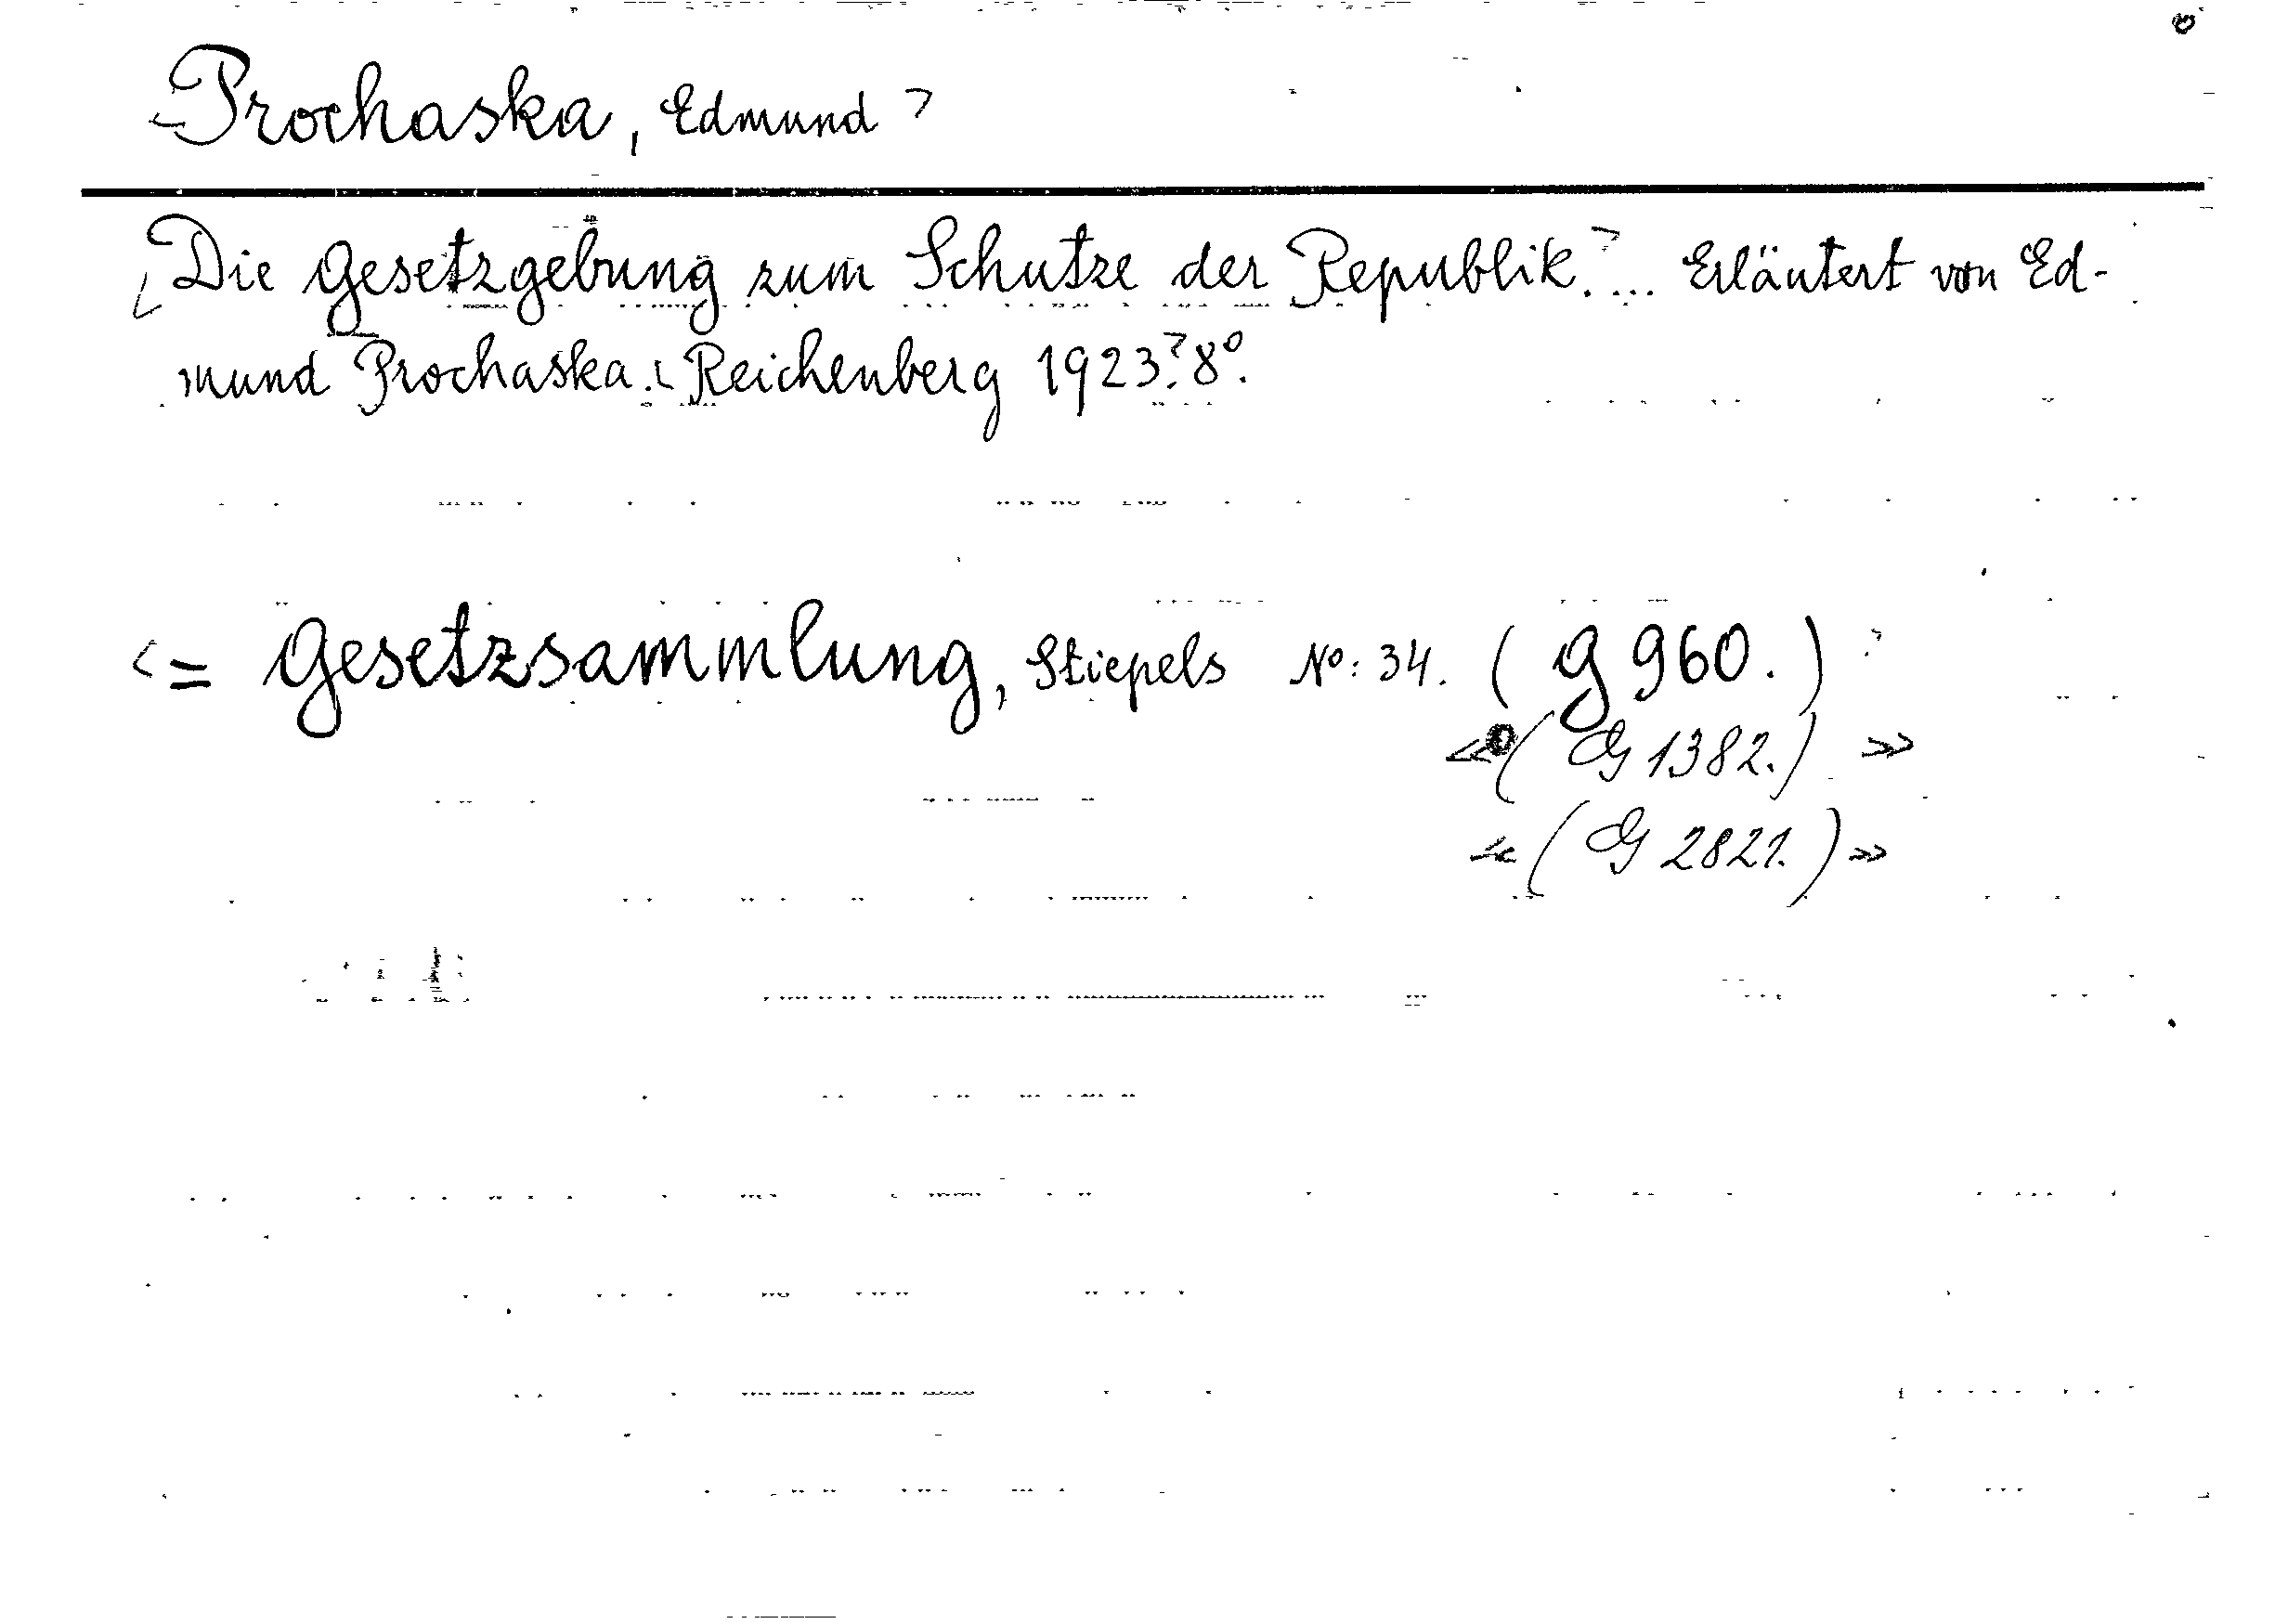 <Prochaska, Edmund>
<Die Gesetzgebung zum Schutze der Republik.> ... Erläutert von Ed-
mund Prochaska. <Reichenberg 1923.> 8°.
<= Gesetzsammlung, Stiepels No: 34. (G 960.)>
<<(G 1382.)>>
<<(G 2821.)>>